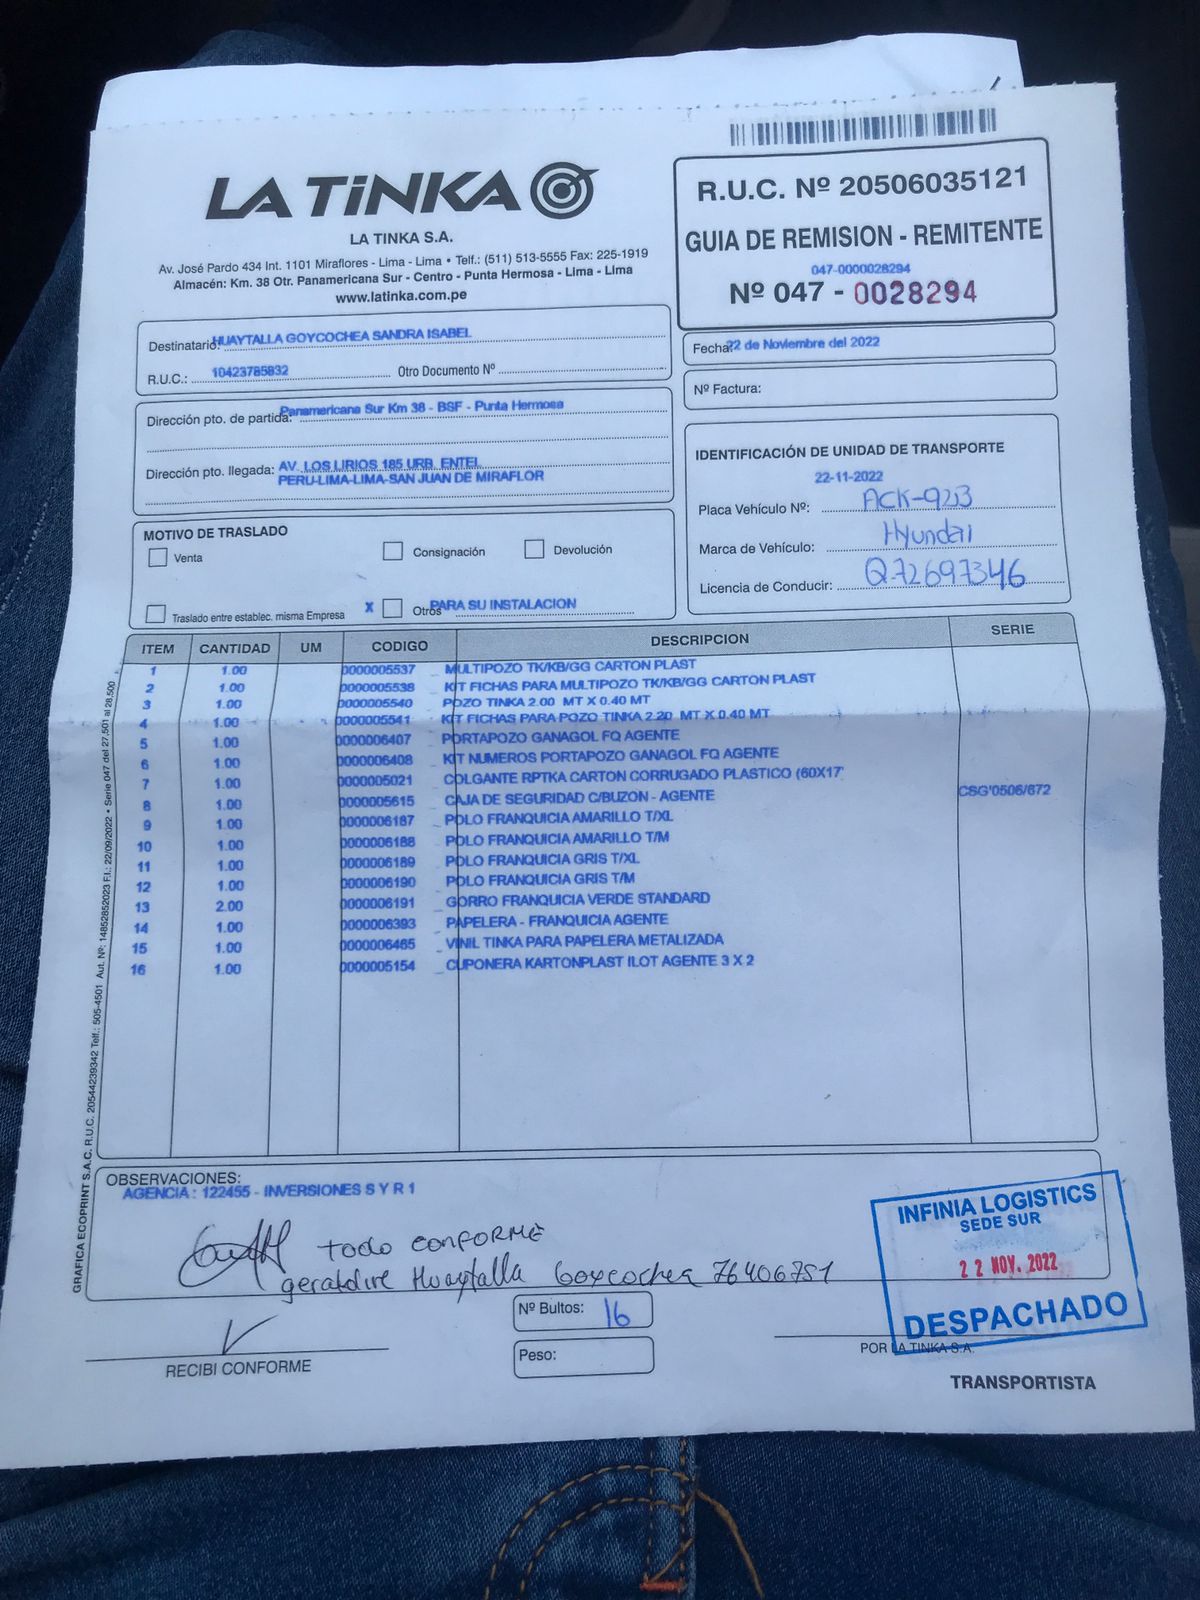 LA TiNKA
LA TINKA S.A.
Av. José Pardo 434 Int. 1101 Miraflores - Lima - Lima • Telf.: (511) 513-5555 Fax: 225-1919
Almacén: Km. 38 Otr. Panamericana Sur - Centro - Punta Hermosa - Lima - Lima
www.latinka.com.pe
R.U.C. Nº 20506035121
GUIA DE REMISION - REMITENTE
047-0000028294
Nº 047 - 0028294
Destinatario: HUAYTALLA GOYCOCHEA SANDRA ISABEL
R.U.C.: 10423785832 Otro Documento Nº
Fecha: 22 de Noviembre del 2022
Nº Factura:
Dirección pto. de partida: Panamericana Sur Km 38 - BSF - Punta Hermosa
Dirección pto. llegada: AV. LOS LIRIOS 185 URB. ENTEL
PERU-LIMA-LIMA-SAN JUAN DE MIRAFLOR
IDENTIFICACIÓN DE UNIDAD DE TRANSPORTE
22-11-2022
Placa Vehículo Nº:
Marca de Vehículo: Hyundai
Licencia de Conducir: Q72697346
MOTIVO DE TRASLADO
Venta Consignación Devolución
Traslado entre establec. misma Empresa X Otros PARA SU INSTALACION
ITEM CANTIDAD UM CODIGO DESCRIPCION SERIE
1 1.00 0000005537 _ MULTIPOZO TK/KB/GG CARTON PLAST
2 1.00 0000005538 _ KIT FICHAS PARA MULTIPOZO TK/KB/GG CARTON PLAST
3 1.00 0000005540 _ POZO TINKA 2.00 MT X 0.40 MT
4 1.00 0000005541 _ KIT FICHAS PARA POZO TINKA 2.20 MT X 0.40 MT
5 1.00 0000006407 _ PORTAPOZO GANAGOL FQ AGENTE
6 1.00 0000006408 _ KIT NUMEROS PORTAPOZO GANAGOL FQ AGENTE
7 1.00 0000005021 _ COLGANTE RPTKA CARTON CORRUGADO PLASTICO (60X17
8 1.00 0000005615 _ CAJA DE SEGURIDAD C/BUZON - AGENTE CSG'0506/672
9 1.00 0000006187 _ POLO FRANQUICIA AMARILLO T/XL
10 1.00 0000006188 _ POLO FRANQUICIA AMARILLO T/M
11 1.00 0000006189 _ POLO FRANQUICIA GRIS T/XL
12 1.00 0000006190 _ POLO FRANQUICIA GRIS T/M
13 2.00 0000006191 _ GORRO FRANQUICIA VERDE STANDARD
14 1.00 0000006393 _ PAPELERA - FRANQUICIA AGENTE
15 1.00 0000006465 _ VINIL TINKA PARA PAPELERA METALIZADA
16 1.00 0000005154 _ CUPONERA KARTONPLAST ILOT AGENTE 3 X 2
GRAFICA ECOPRINT S.A.C. R.U.C. 20544239342 Telf.: 505-4501 Aut. Nº: 14852852023 F.I.: 22/09/2022 • Serie 047 del 27,501 al 28,500
OBSERVACIONES:
AGENCIA : 122455 - INVERSIONES S Y R 1
todo conforme
geraldine Huaytalla Goycochea 76406751
INFINIA LOGISTICS
SEDE SUR
22 NOV. 2022
DESPACHADO
Nº Bultos: 16
Peso:
RECIBI CONFORME
POR LA TINKA S.A.
TRANSPORTISTA